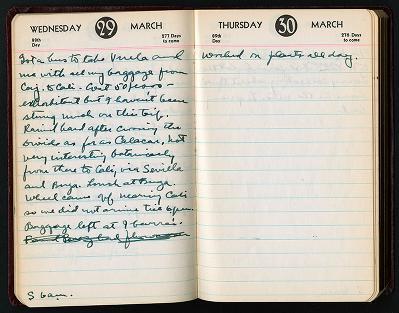 WEDNESDAY 29 MARCH
88th Day
277 Days to come
Got a bus to take Varela and
me with all my baggage from
to Cali. Cost
exorbitant but I haven't been
stung much on this trip.
Rained hard after crossing the
divide as far as Calacar. Not
very interesting botanically
from there to Cali, via Sevilla
and Buga. Lunch at Buga.
Wheel came off nearing Cali
so we did not arrive till 6 p.m.
Baggage left at
S 6 a.m.
THURSDAY 30 MARCH
89th Day
276 Days to come
Worked on plants all day.